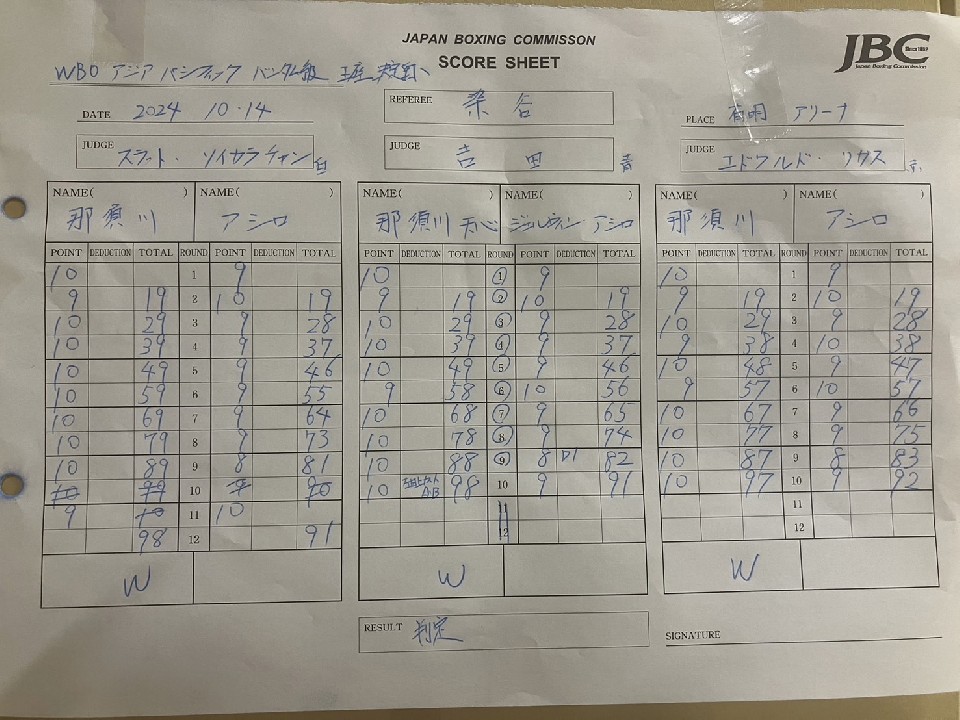 JAPAN BOXING COMMISSON
SCORE SHEET
JBC Since 1952 Japan Boxing Commission
WBO アジア パシフィック バンタム級 王座決定戦
DATE 2024 10.14
REFEREE 染谷
PLACE 有明 アリーナ
JUDGE スラット・ソイカラチャン 白
JUDGE 吉田 青
JUDGE エドワルド・リガス 赤
NAME( ) NAME( ) NAME( ) NAME( ) NAME( ) NAME( )
那須川 アシロ 那須川 天心 ジェルウィン アシロ 那須川 アシロ
POINT DEDUCTION TOTAL ROUND POINT DEDUCTION TOTAL POINT DEDUCTION TOTAL ROUND POINT DEDUCTION TOTAL POINT DEDUCTION TOTAL ROUND POINT DEDUCTION TOTAL
10 1 9 10 1 9 10 1 9
9 19 2 10 19 9 19 2 10 19 9 19 2 10 19
10 29 3 9 28 10 29 3 9 28 10 29 3 9 28
10 39 4 9 37 10 39 4 9 37 9 38 4 10 38
10 49 5 9 46 10 49 5 9 46 10 48 5 9 47
10 59 6 9 55 9 58 6 10 56 9 57 6 10 57
10 69 7 9 64 10 68 7 9 65 10 67 7 9 66
10 79 8 9 73 10 78 8 9 74 10 77 8 9 75
10 89 9 8 81 10 88 9 8 D1 82 10 87 9 8 83
10 99 10 9 90 10 98 10 9 91 10 97 10 9 92
9 10 11 10 11 11
98 12 91 12 12
W W W
RESULT 判定
SIGNATURE